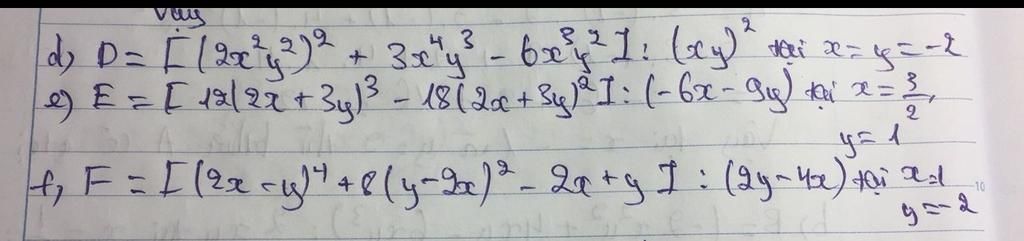 Vậy
d) D = [(2x²y²)² + 3x⁴y³ - 6x³y²] : (xy)² tại x = y = -2
e) E = [12(2x + 3y)³ - 18(2x + 3y)²] : (-6x - 9y) tại x = 3/2,
y = 1
f) F = [(2x - y)⁴ + 8(y - 2x)² - 2x + y] : (2y - 4x) tại x=1
y = -2
10